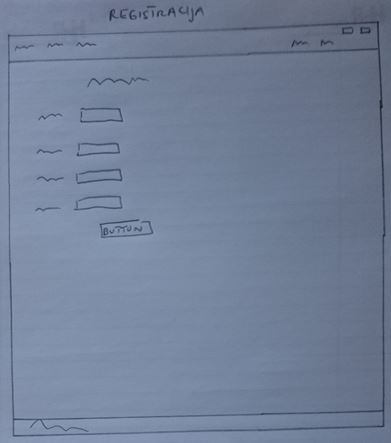 REGISTRACIJA
BUTTON